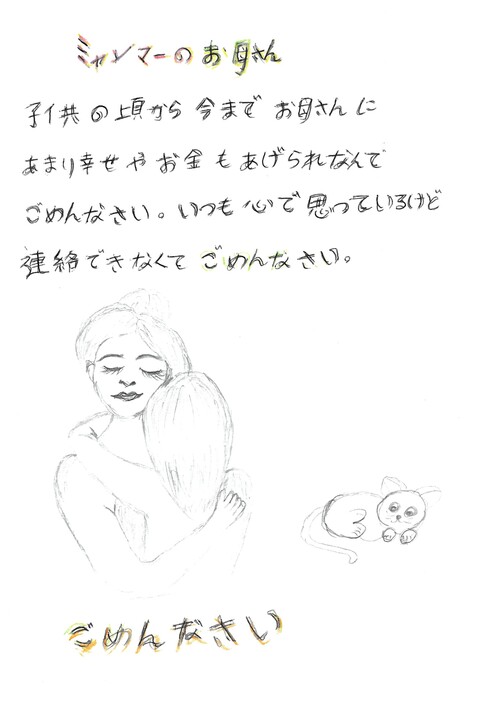 ミャンマーのお母さん
子イ共の頃から今までお母さんに
あまり幸せやお金もあげられなんで
ごめんなさい。いつも心で思っているけど
連絡できなくてごめんなさい。
ごめんなさい